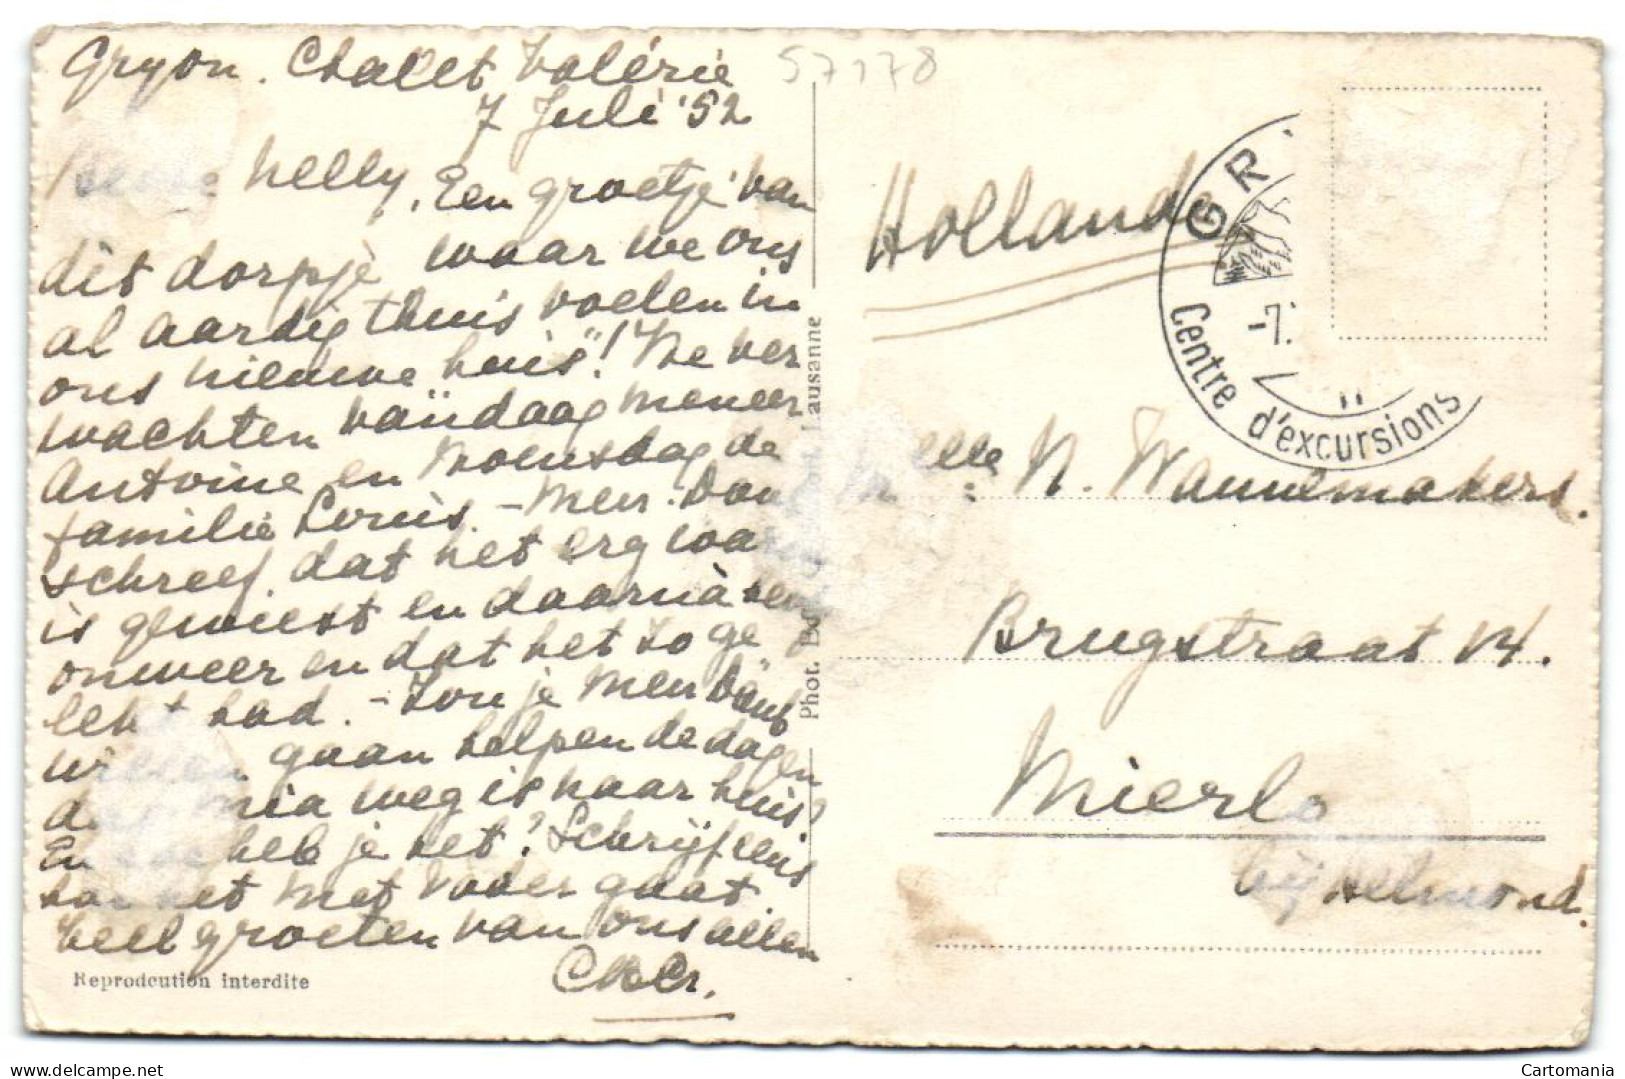 Gryon. Chalet Valérie
7 Juli '52
Nelly, Een groetje van
dit dorpje waar we ons
al aardig thuis voelen in
ons nieuwe "huis"! We ver
wachten vandaag meneer
Antoine en Woensdag de
familie Loruis. - Mevr.
schreef dat het erg
is geweest en daarnà
onweer en dat het zo ge
lekt had. - Zou je Mevr
willen gaan helpen de dagen
dat Mia weg is naar huis?
En heb je het? Schrijf eens
hoe het met Vader gaat.
Veel groeten van ons allen
Reprodcution interdite
57178
Phot. Lausanne
Hollande
GR
Centre d'excursions
-7.
Melle N. Wannemakers.
Brugstraat 14.
Mierlo
bij Helmond.
delcampe.net
Cartomania